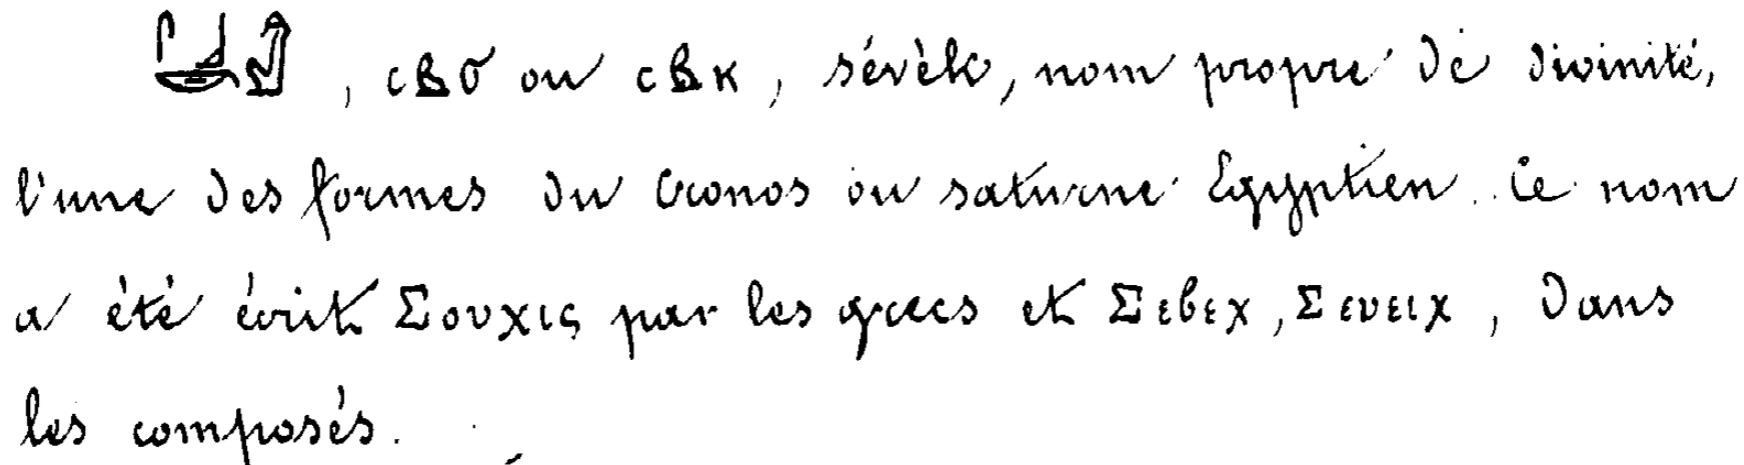 , ⲥⲃϭ ou ⲥⲃⲕ, sévèk, nom propre de divinité,
l'une des formes du Cronos ou saturne Egyptien. Ce nom
a été écrit Σουχις par les grecs et Σεβεχ, Σευειχ, dans
les composés.